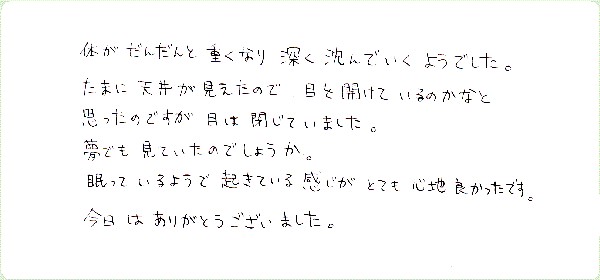 体がだんだんと重くなり深く沈んでいくようでした。
たまに天井が見えたので、目を開けているのかなと
思ったのですが目は閉じていました。
夢でも見ていたのでしょうか。
眠っているようで起きている感じがとても心地良かったです。
今日はありがとうございました。